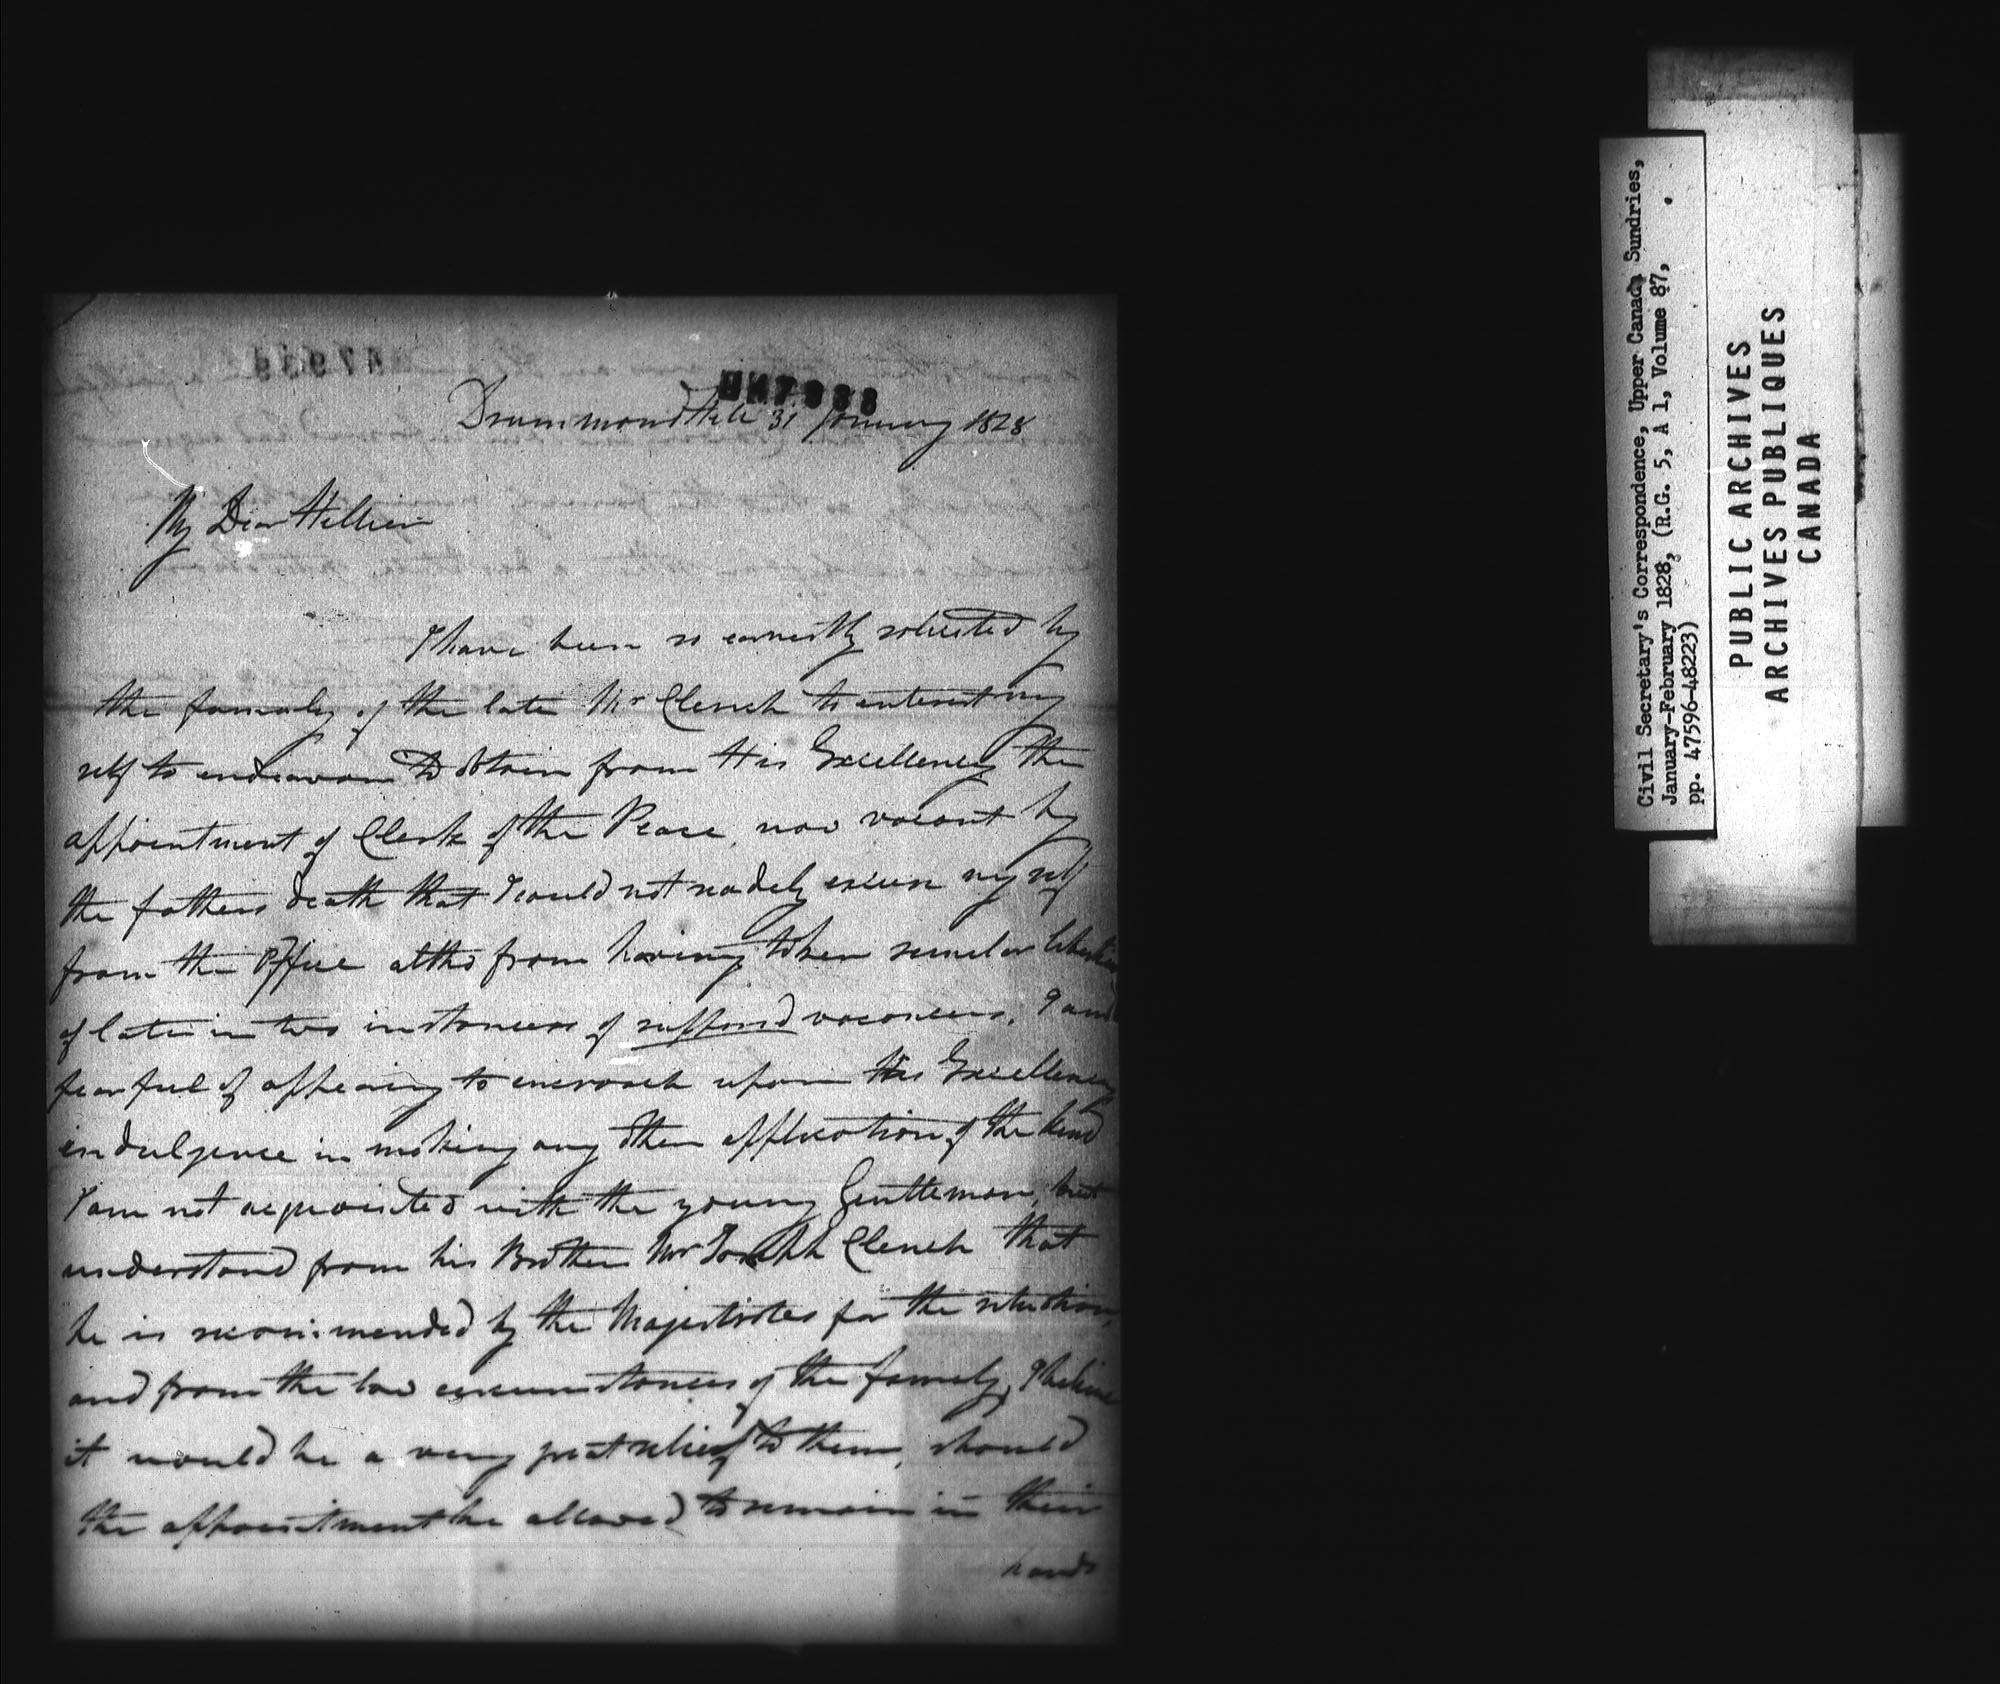 Drummondville 31 January 1828
My Dear Hillier
I have been so earnestly solicited by
the family of the late Mr Clench to interest my
self to endeavour to obtain from His Excellency the
appointment of Clerk of the Peace, now vacant by
the fathers death that I could not readily excuse myself
from the Office altho from having taken similar liberties
of late in two instances of supposed vacancies, I am
fearful of appearing to encroach upon His Excellency
indulgence in making any other application of the kind
I am not acquainted with the young Gentleman, but
understand from his Brother Mr Joseph Clench that
he is recommended by the Magistrates for the situation,
and from the low circumstances of the family, I believe
it would be a very great relief to them, should
the appointment be allowed to remain in their
hands
Civil Secretary's Correspondence, Upper Canada Sundries,
January-February 1828, (R.G. 5, A 1, Volume 87,
pp. 47596-48223)
PUBLIC ARCHIVES
ARCHIVES PUBLIQUES
CANADA